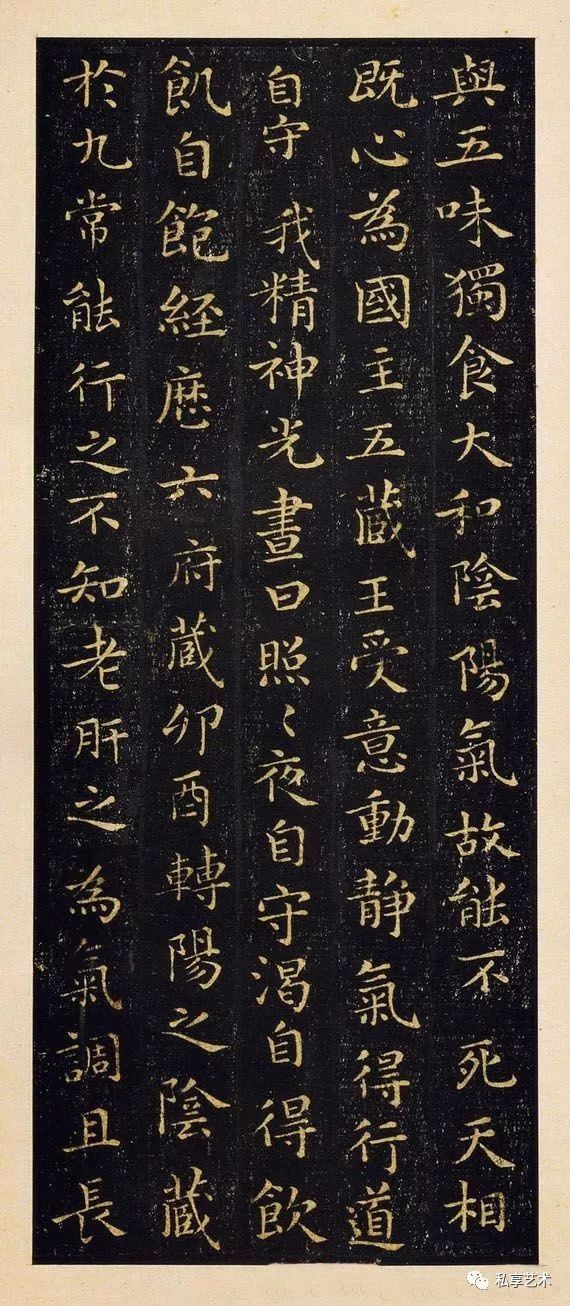 與五味獨食大和陰陽氣故能不死天相
既心為國主五蔵王受意動静氣得行道
自守我精神光晝日照〻夜自守渴自得飲
飢自飽経歴六府蔵卯酉轉陽之陰蔵
於九常能行之不知老肝之為氣調且長
私享艺术